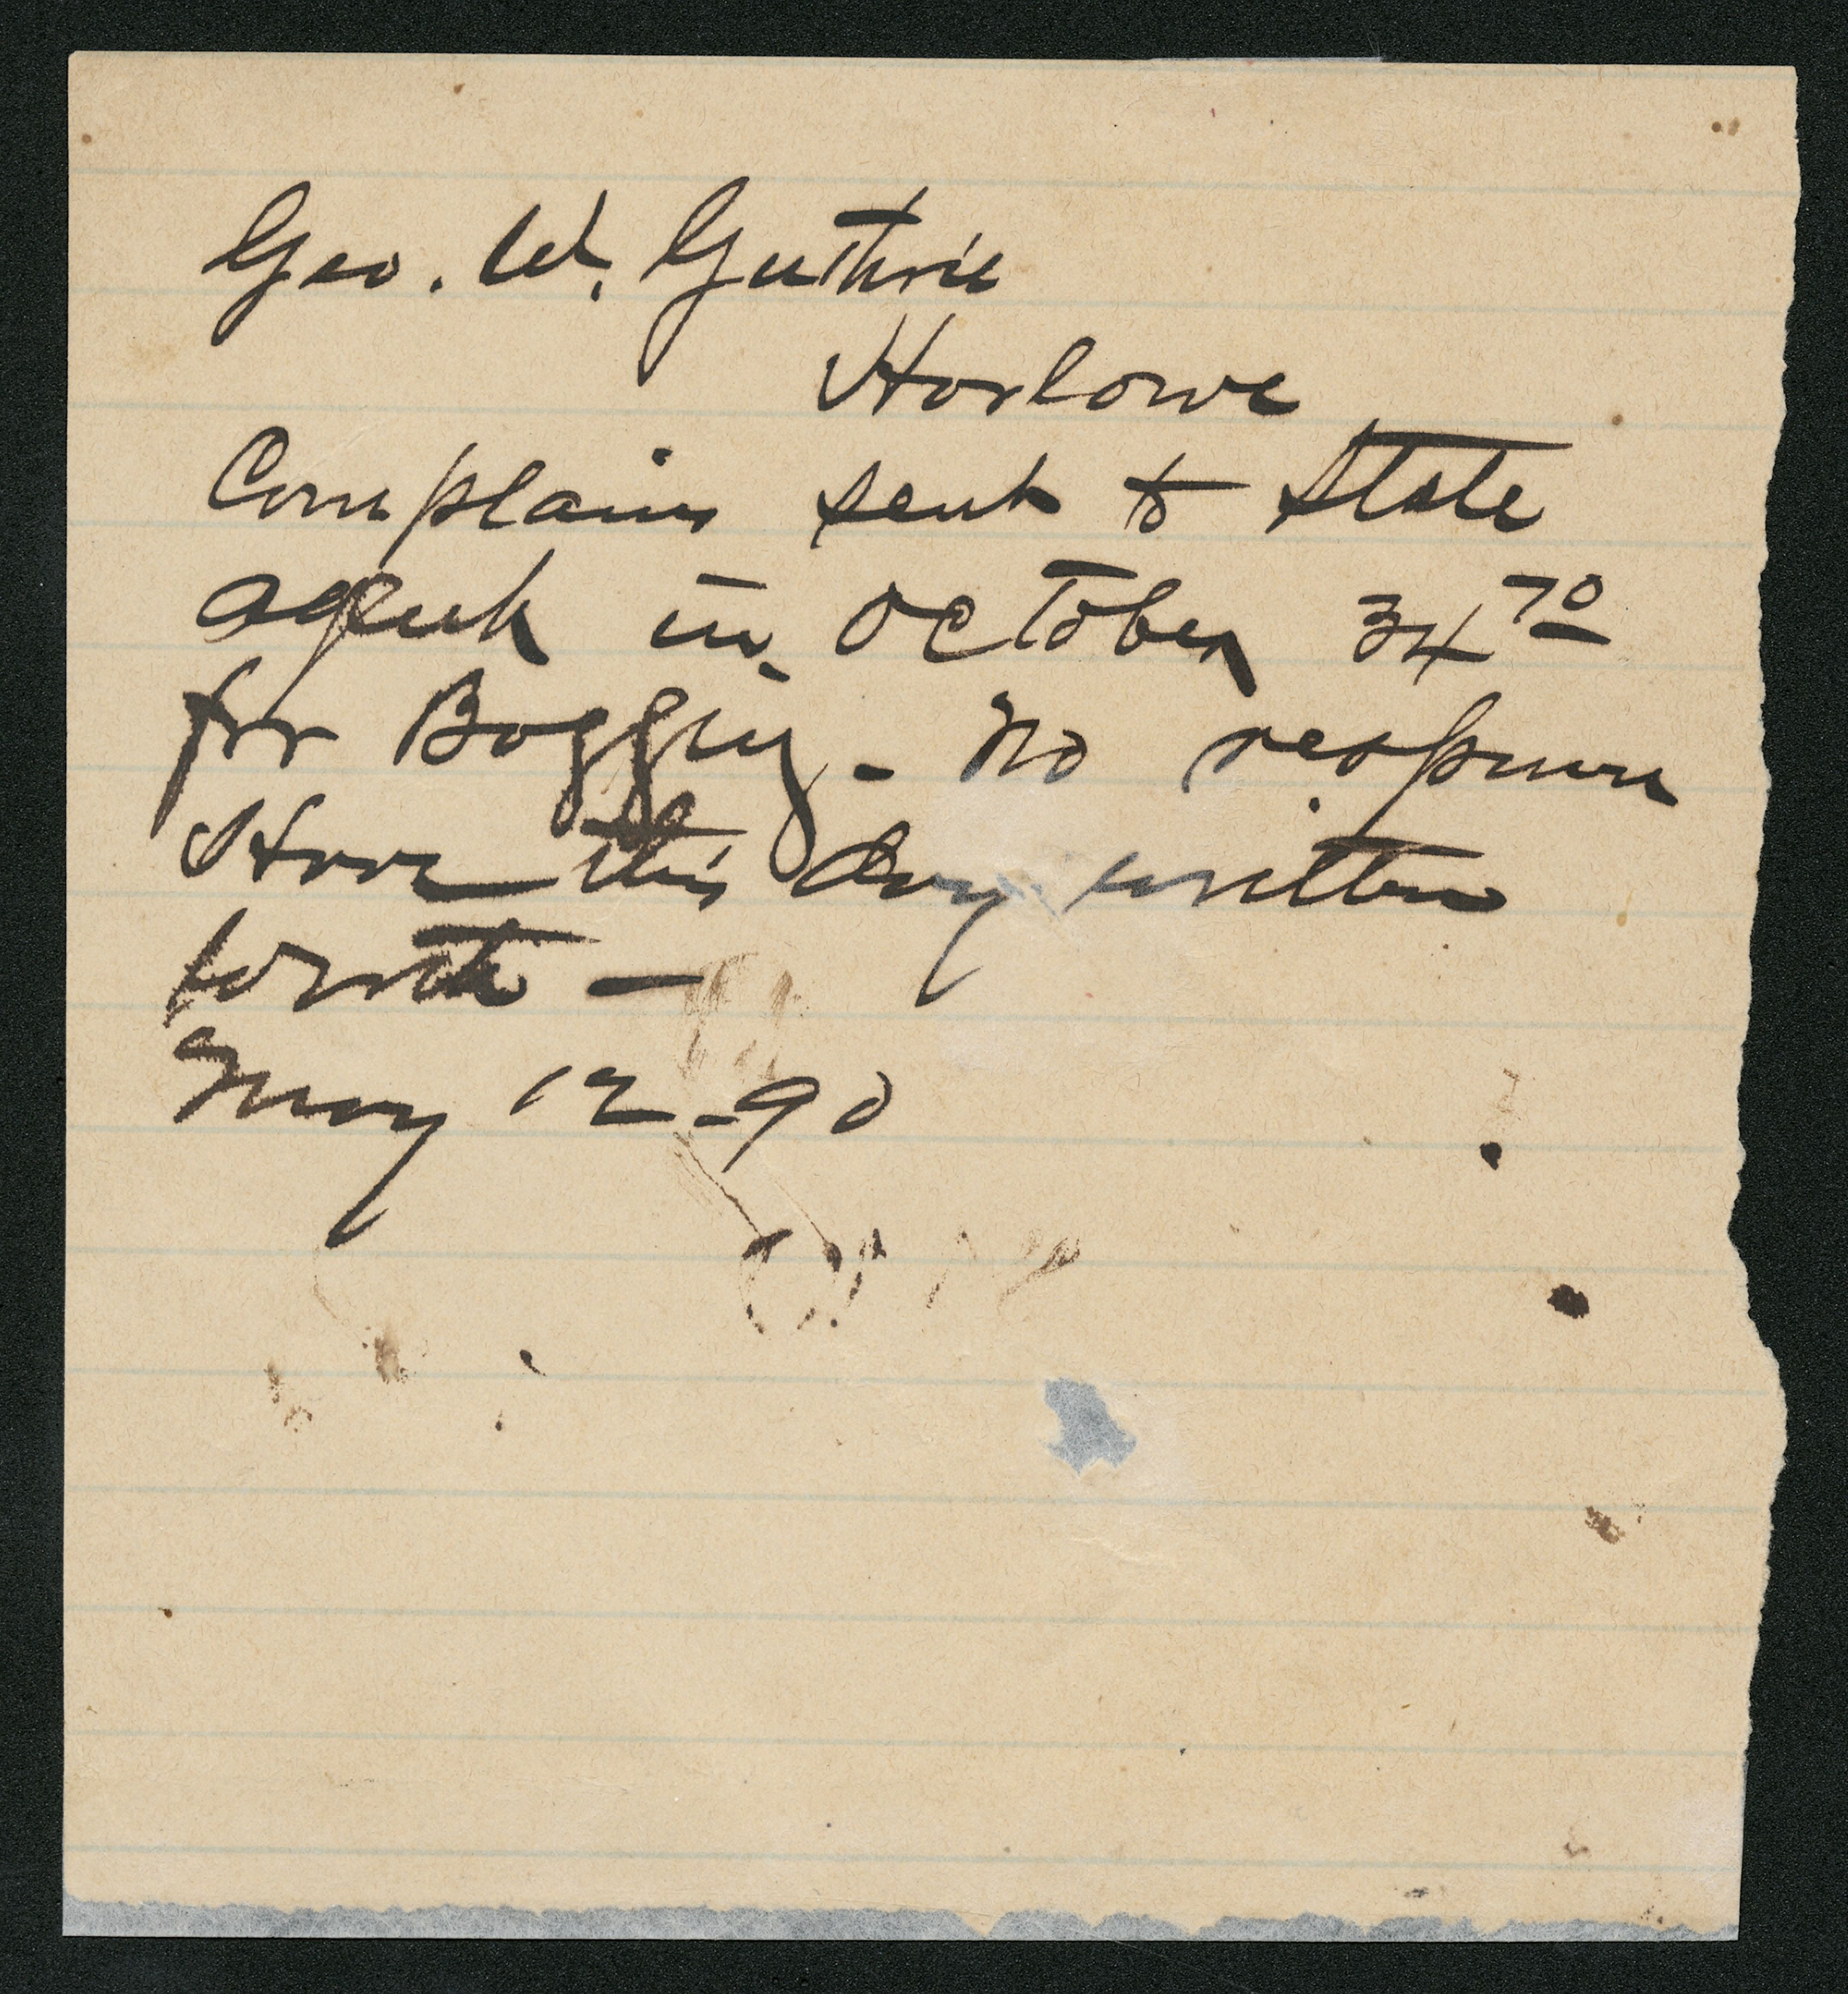 Geo. W. Guthrie
Harlowe
Complains sent to State
agent in October 34 70
for Bagging - No response
Have this day written
Worth -
May 12 - 90